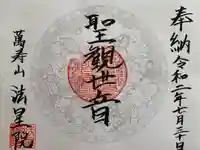 奉納 令和二年七月三十日
聖観世音
萬寿山 法星院